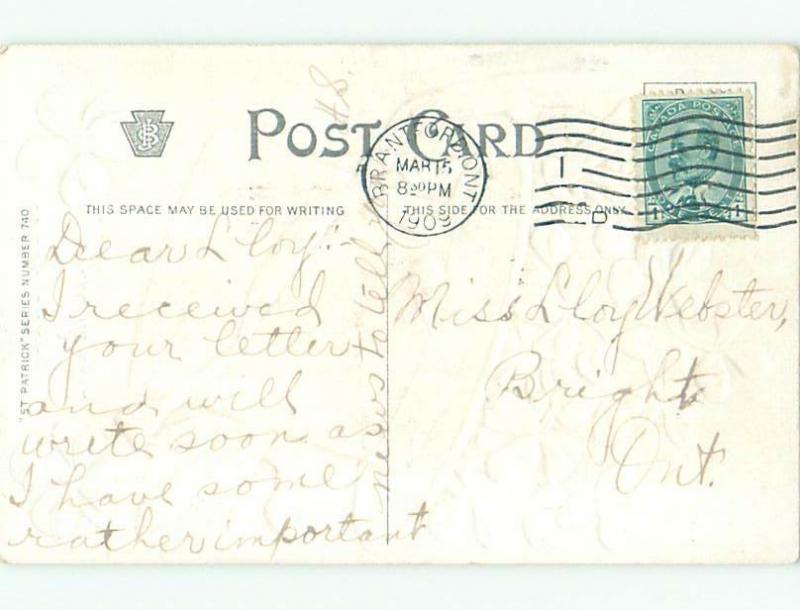 POST CARD
BRANTFORD, ONT
MAR 15
8 30 PM
1909
CANADA POSTAGE
THIS SPACE MAY BE USED FOR WRITING
THIS SIDE FOR THE ADDRESS ONLY
"ST PATRICK" SERIES NUMBER 740
Dear Lloy:-
I received
your letter
and will
write soon as
I have some
rather important
news to tell
Miss Lloy Webster,
Bright
Ont.